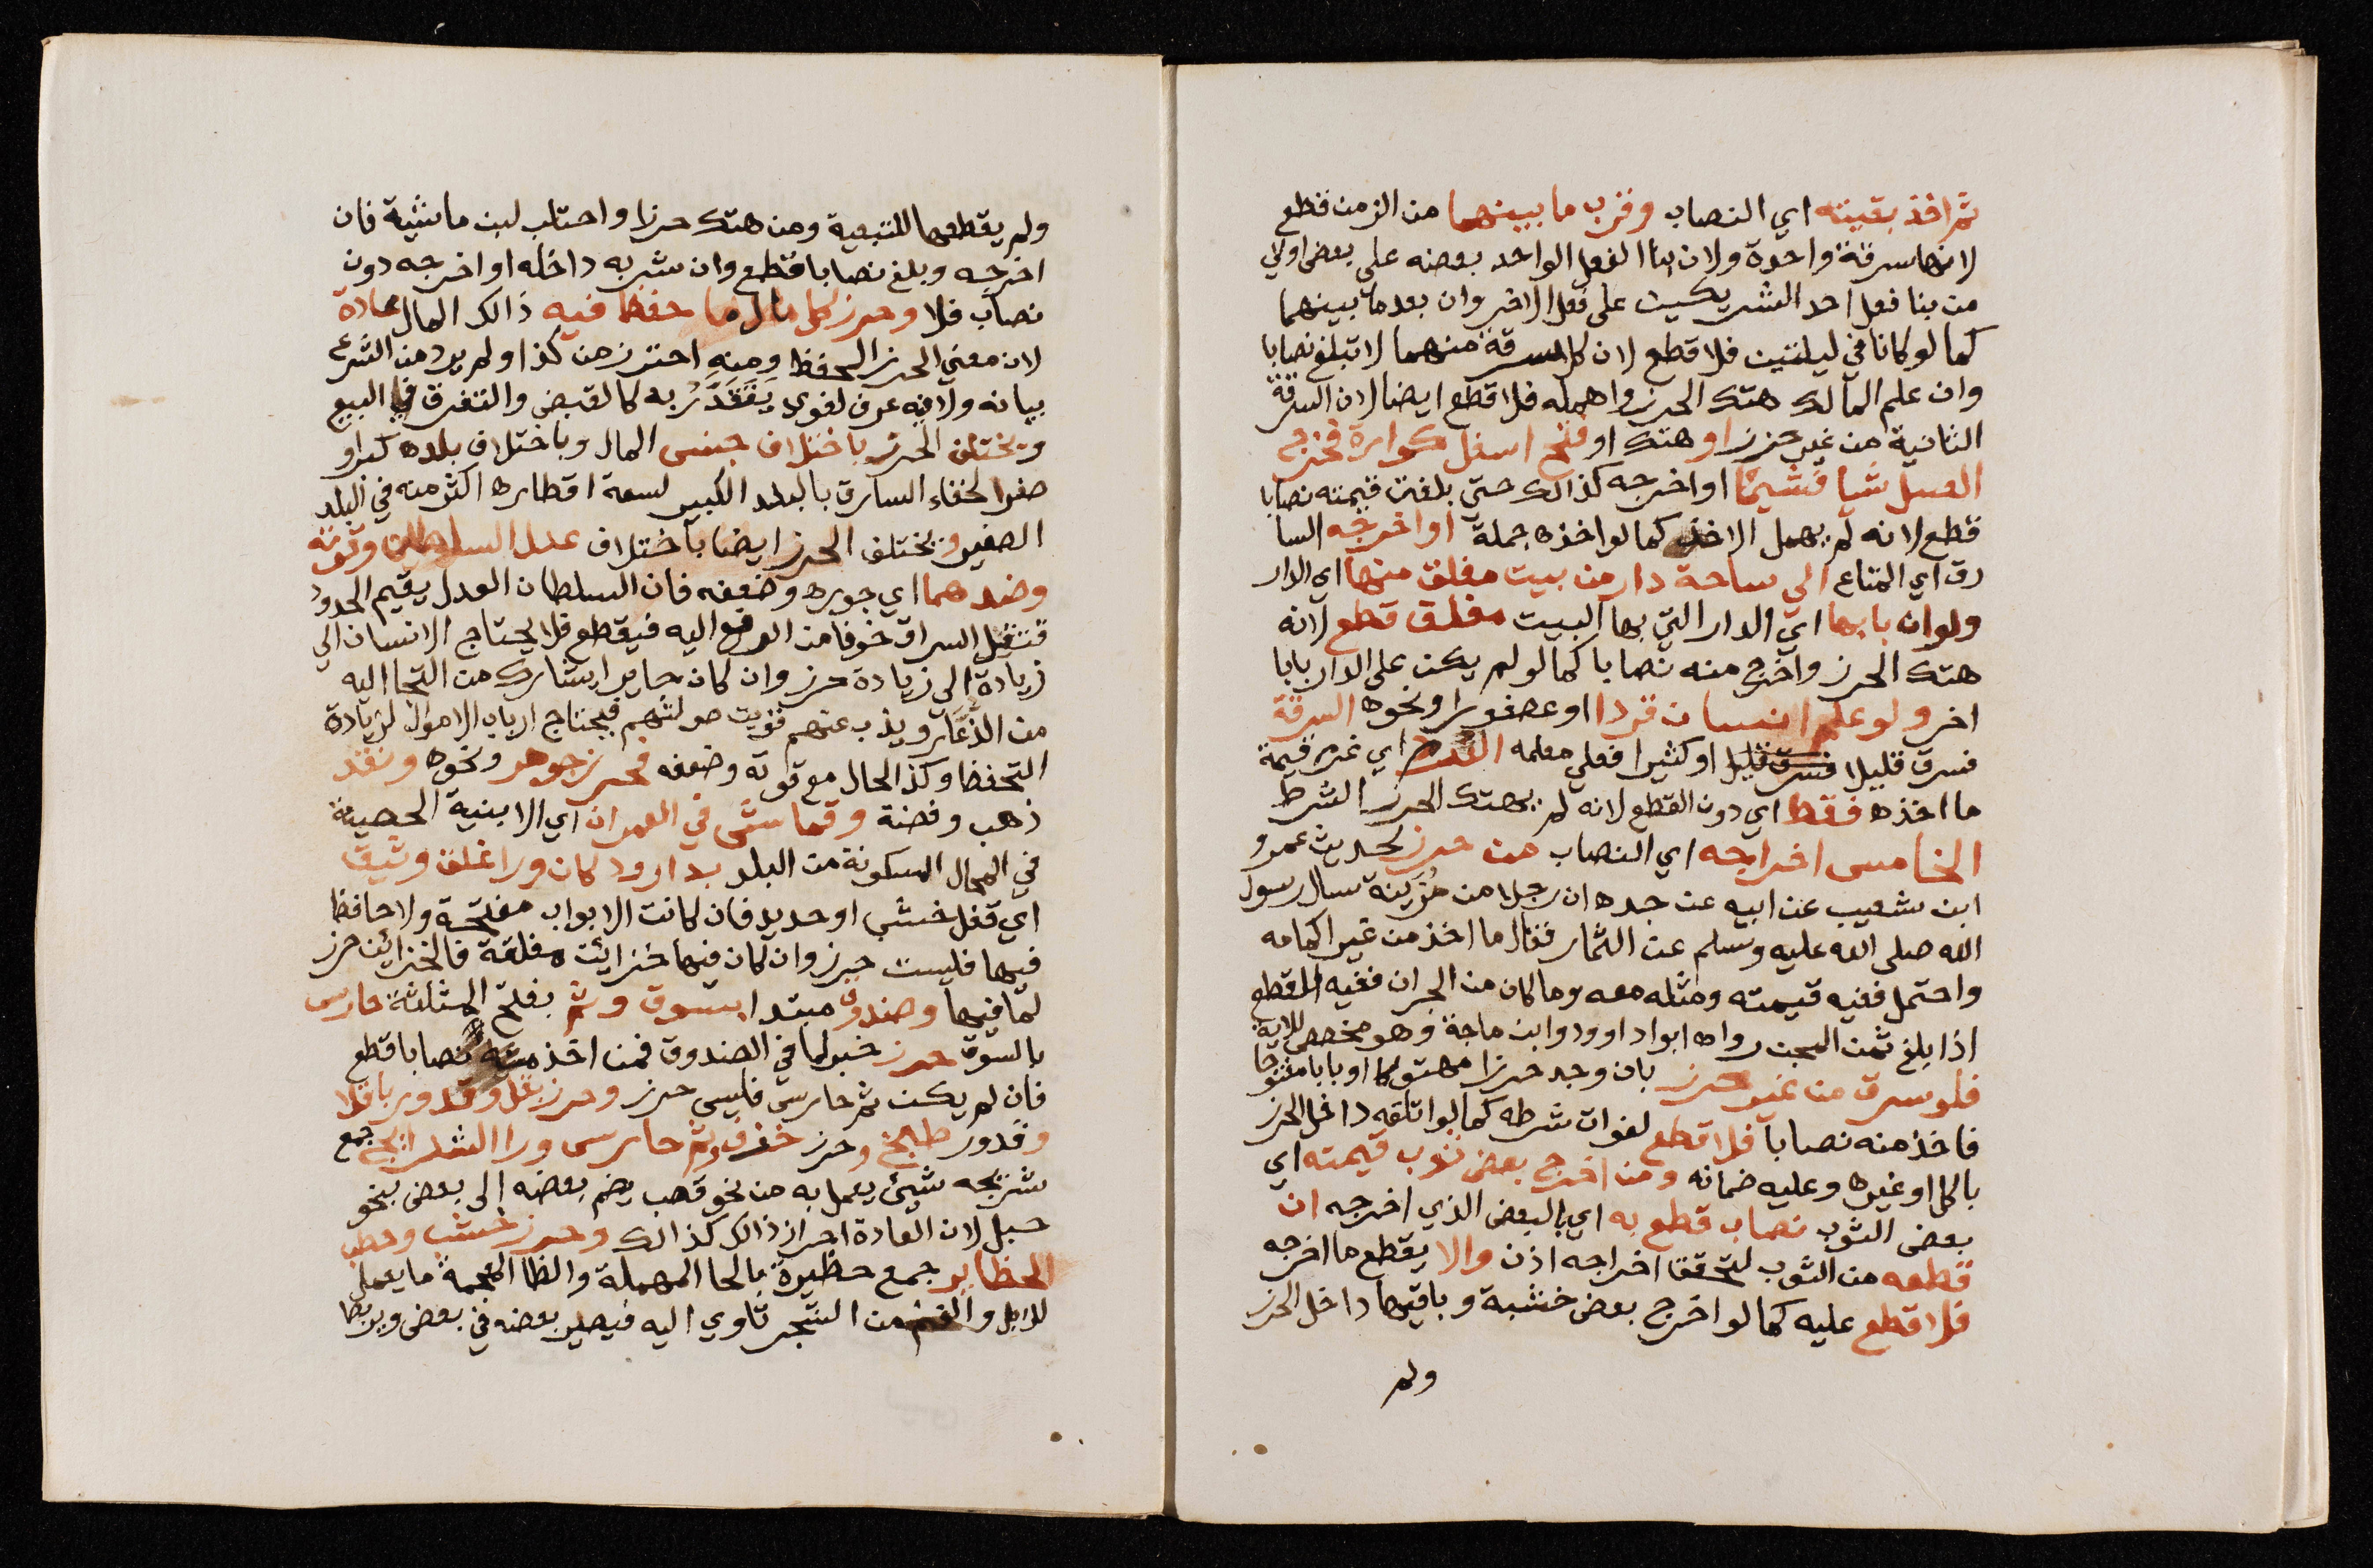 ثم اخذ بقيته اي النصاب وقرب ما بينهما من الزمن قطع
لانها سرقة واحدة ولان بنا الفعل الواحد بعضه على بعض اولي
من بنا فعل احد الشريكين على فعل الاخر وان بعد ما بينهما
كما لو كانا في ليلتين فلا قطع لان كل سرقة منهما لا تبلغ نصابا
وان علم المالك هتك الحرز واهمله فلا قطع ايضا لان السرقة
الثانية من غير حرز او هتك او فتح اسفل كوارة فخرج
العسل شيا فشيئا او اخرجه كذالك حتي بلغت قيمته نصابا
قطع لانه لم يهمل الاخذ كما لو اخذه جملة او اخرجه السا
رق اي المتاع الي ساحة دار من بيت مغلق منها اي الدار
ولو ان بابها اي الدار التي بها البيت مغلق قطع لانه
هتك الحرز واخرج منه نصابا كما لو لم يكن على الدار بابا
اخر ولو علم انسان قردا او عصفورا ونحوه السرقة
فسرق قليلا او كثيرا فعلي معلمه الغرم اي غرم قيمة
ما اخذه فقط اي دون القطع لانه لم يهتك الحرز الشرط
الخامس اخراجه اي النصاب من حرز لحديث عمرو
ابن شعيب عن ابيه عن جده ان رجلا من مُزَينة سال رسول
الله صلى الله عليه وسلم عن الثمار فقال ما اخذ من غير اكمامه
واحتمل ففيه قيمته ومثله معه وما كان من الجران ففيه القطع
اذا بلغ ثمن المجن رواه ابوا داوود وابن ماجة وهو مخصص للاية
فلو سرق من غير حرز بان وجد حرزا مهتوكا او بابا مفتوحا
فاخذ منه نصابا فلا قطع لفوات شرطه كما لو اتلفه داخل الحرز
باكل او غيره وعليه ضمانه ومن اخرج بعض ثوب قيمته اي
بعض الثوب نصاب قطع به اي بالبعض الذي اخرجه ان
قطعه من الثوب لتحقق اخراجه اذن والا يقطع ما اخرجه
فلا قطع عليه كما لو اخرج بعض خشبة وباقيها داخل الحرز
ولم
ولم يقطعها للتبعية ومن هتك حرزا واحتلب لبن ماشية فان
اخرجه وبلغ نصابا قطع وان شربه داخله او اخرجه دون
نصاب فلا وحرز كل مال ما حفظ فيه ذالك المال عادة
لان معني الحرز الحفظ ومنه احترز من كذا ولم يرد من الشرع
بيانه ولا فيه عرف لغوي يَتَقَدَّرُ به كالقبض والتفرق في البيع
ويختلف الحرز باختلاف جنس المال وباختلاف بلده كبرا و
صغرا لخفاء السارق بالبلد الكبير لسعة اقطاره اكثر منه في البلد
الصغير ويختلف الحرز ايضا باختلاف عدل السلطان وقوته
وضدهما اي جوره وضعفه فان السلطان العدل يقيم الحدود
فتقل السراق خوفا من الرفع اليه فيقطع فلا يحتاج الانسان الي
زيادة الي زيادة حرز وان كان جايرا يشارك من التجا اليه
من الذعار ويذب عنهم قويت صولتهم فيحتاج ارباب الاموال لزيادة
التحفظ وكذا الحال مع قوته وضعفه فحرز جوهر ونحوه ونقد
ذهب وفضة وقماش في العمران اي الابنية الحصينة
في المحال المسكونة من البلد بدار ودكان ورا غلق وثيق
اي قفل خشب او حديد فان كانت الابواب مفتحة ولا حافظ
فيها فليست حرز وان كان فيها خزائن مغلقة فالخزائن حرز
لما فيها وصندوق مبتدا بسوق وثم بفتح المثلثة حارس
بالسوق حرز خبر لما في الصندوق فمن اخذ منه نصابا قطع
فان لم يكن ثم حارس فليس حرز وحرز بقل وقدور باقلا
وقدور طبخ وحرز خزف وثم حارس ورا الشرايج جمع
شريجه شيئ يعمل به من نحو قصب يضم بعضه الى بعض بنحو
حبل لان العادة احراز ذالك كذالك وحرز خشب وحطب
الحظاير جمع حظيرة بالحا المهملة والظا المعجمة ما يعمل
للابل والغنم من الشجر تاوي اليه فيصير بعضه في بعض ويربط